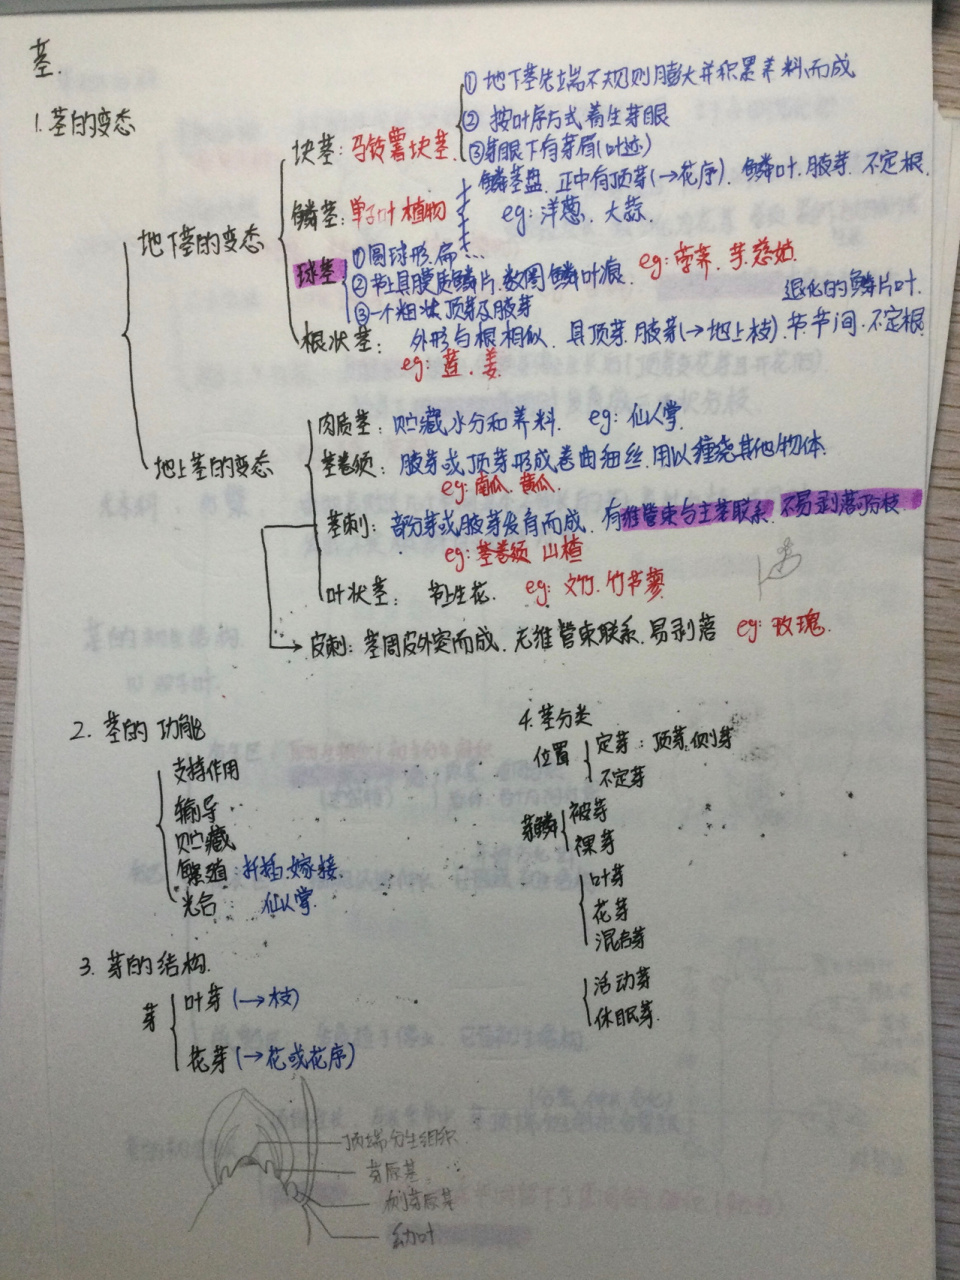 茎.
1.茎的变态
地下茎的变态
块茎：马铃薯块茎
①地下茎先端不规则膨大并积累养料而成
②按叶序方式着生芽眼
③芽眼下有芽眉(叶迹)
鳞茎：单子叶植物
鳞茎盘.正中有顶芽(→花序).鳞叶.腋芽.不定根.
eg:洋葱、大蒜.
球茎
①圆球形.扁…
②节上具膜质鳞片.数周鳞叶痕. eg:荸荠.芋.慈姑.
③一个粗壮顶芽及腋芽
退化的鳞片叶.
根状茎：外形与根相似.具顶芽.腋芽(→地上枝).节节间.不定根
eg:莲.姜.
地上茎的变态
肉质茎：贮藏水分和养料. eg:仙人掌.
茎卷须：腋芽或顶芽形成卷曲细丝.用以缠绕其他物体.
eg:南瓜.黄瓜.
茎刺：部分芽或腋芽发育而成.有维管束与主茎联系.不易剥落可分枝.
eg:茎卷须 山楂
叶状茎：节上生花. eg:文竹.竹节蓼
皮刺：茎周皮外突而成.无维管束联系.易剥落 eg:玫瑰.
2.茎的功能
支持作用
输导
贮藏
繁殖:扦插.嫁接.
光合: 仙人掌.
3.芽的结构.
芽
叶芽(→枝)
花芽(→花或花序)
顶端分生组织.
芽原基.
侧芽原基
幼叶
4.茎分类
位置
定芽：顶芽.侧芽
不定芽
芽鳞
被芽
裸芽
叶芽
花芽
混合芽
活动芽
休眠芽.